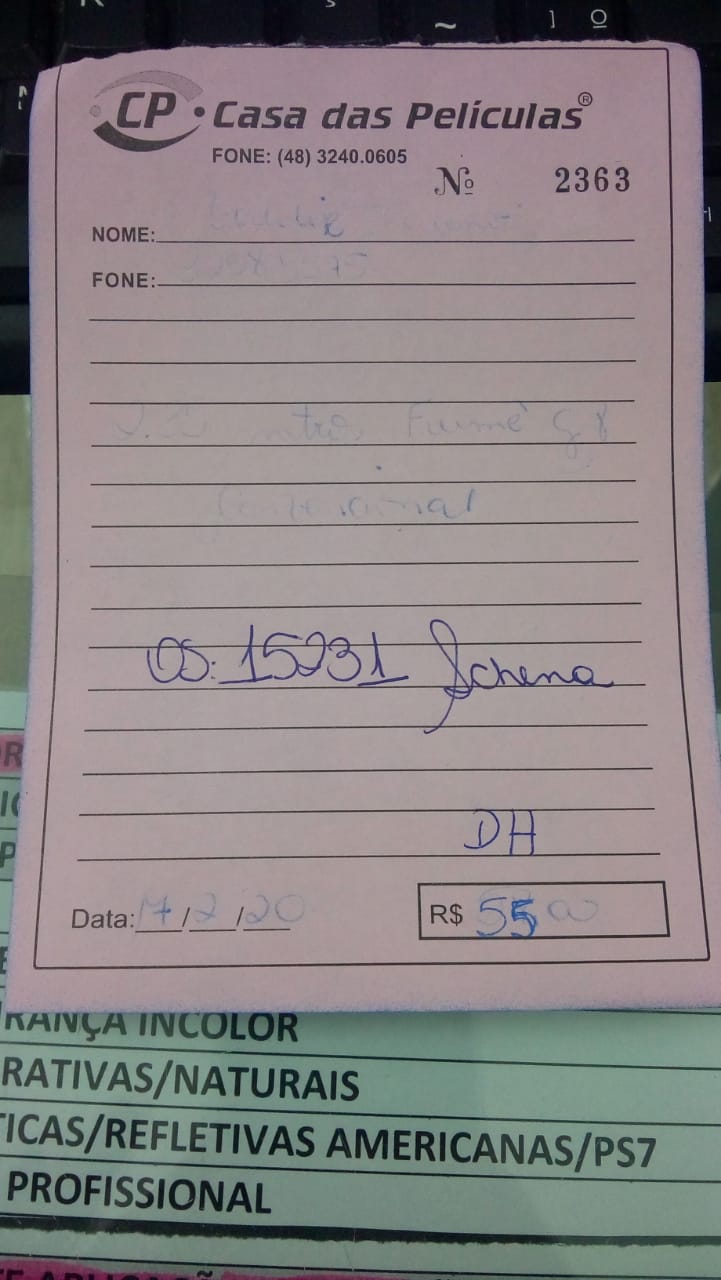 CP • Casa das Películas®
FONE: (48) 3240.0605
Nº 2363
NOME:
FONE:
Fumê G
OS: 15231 Schena
DH
Data: 17/2/20 R$ 55 00
RANÇA INCOLOR
RATIVAS/NATURAIS
TICAS/REFLETIVAS AMERICANAS/PS7
PROFISSIONAL